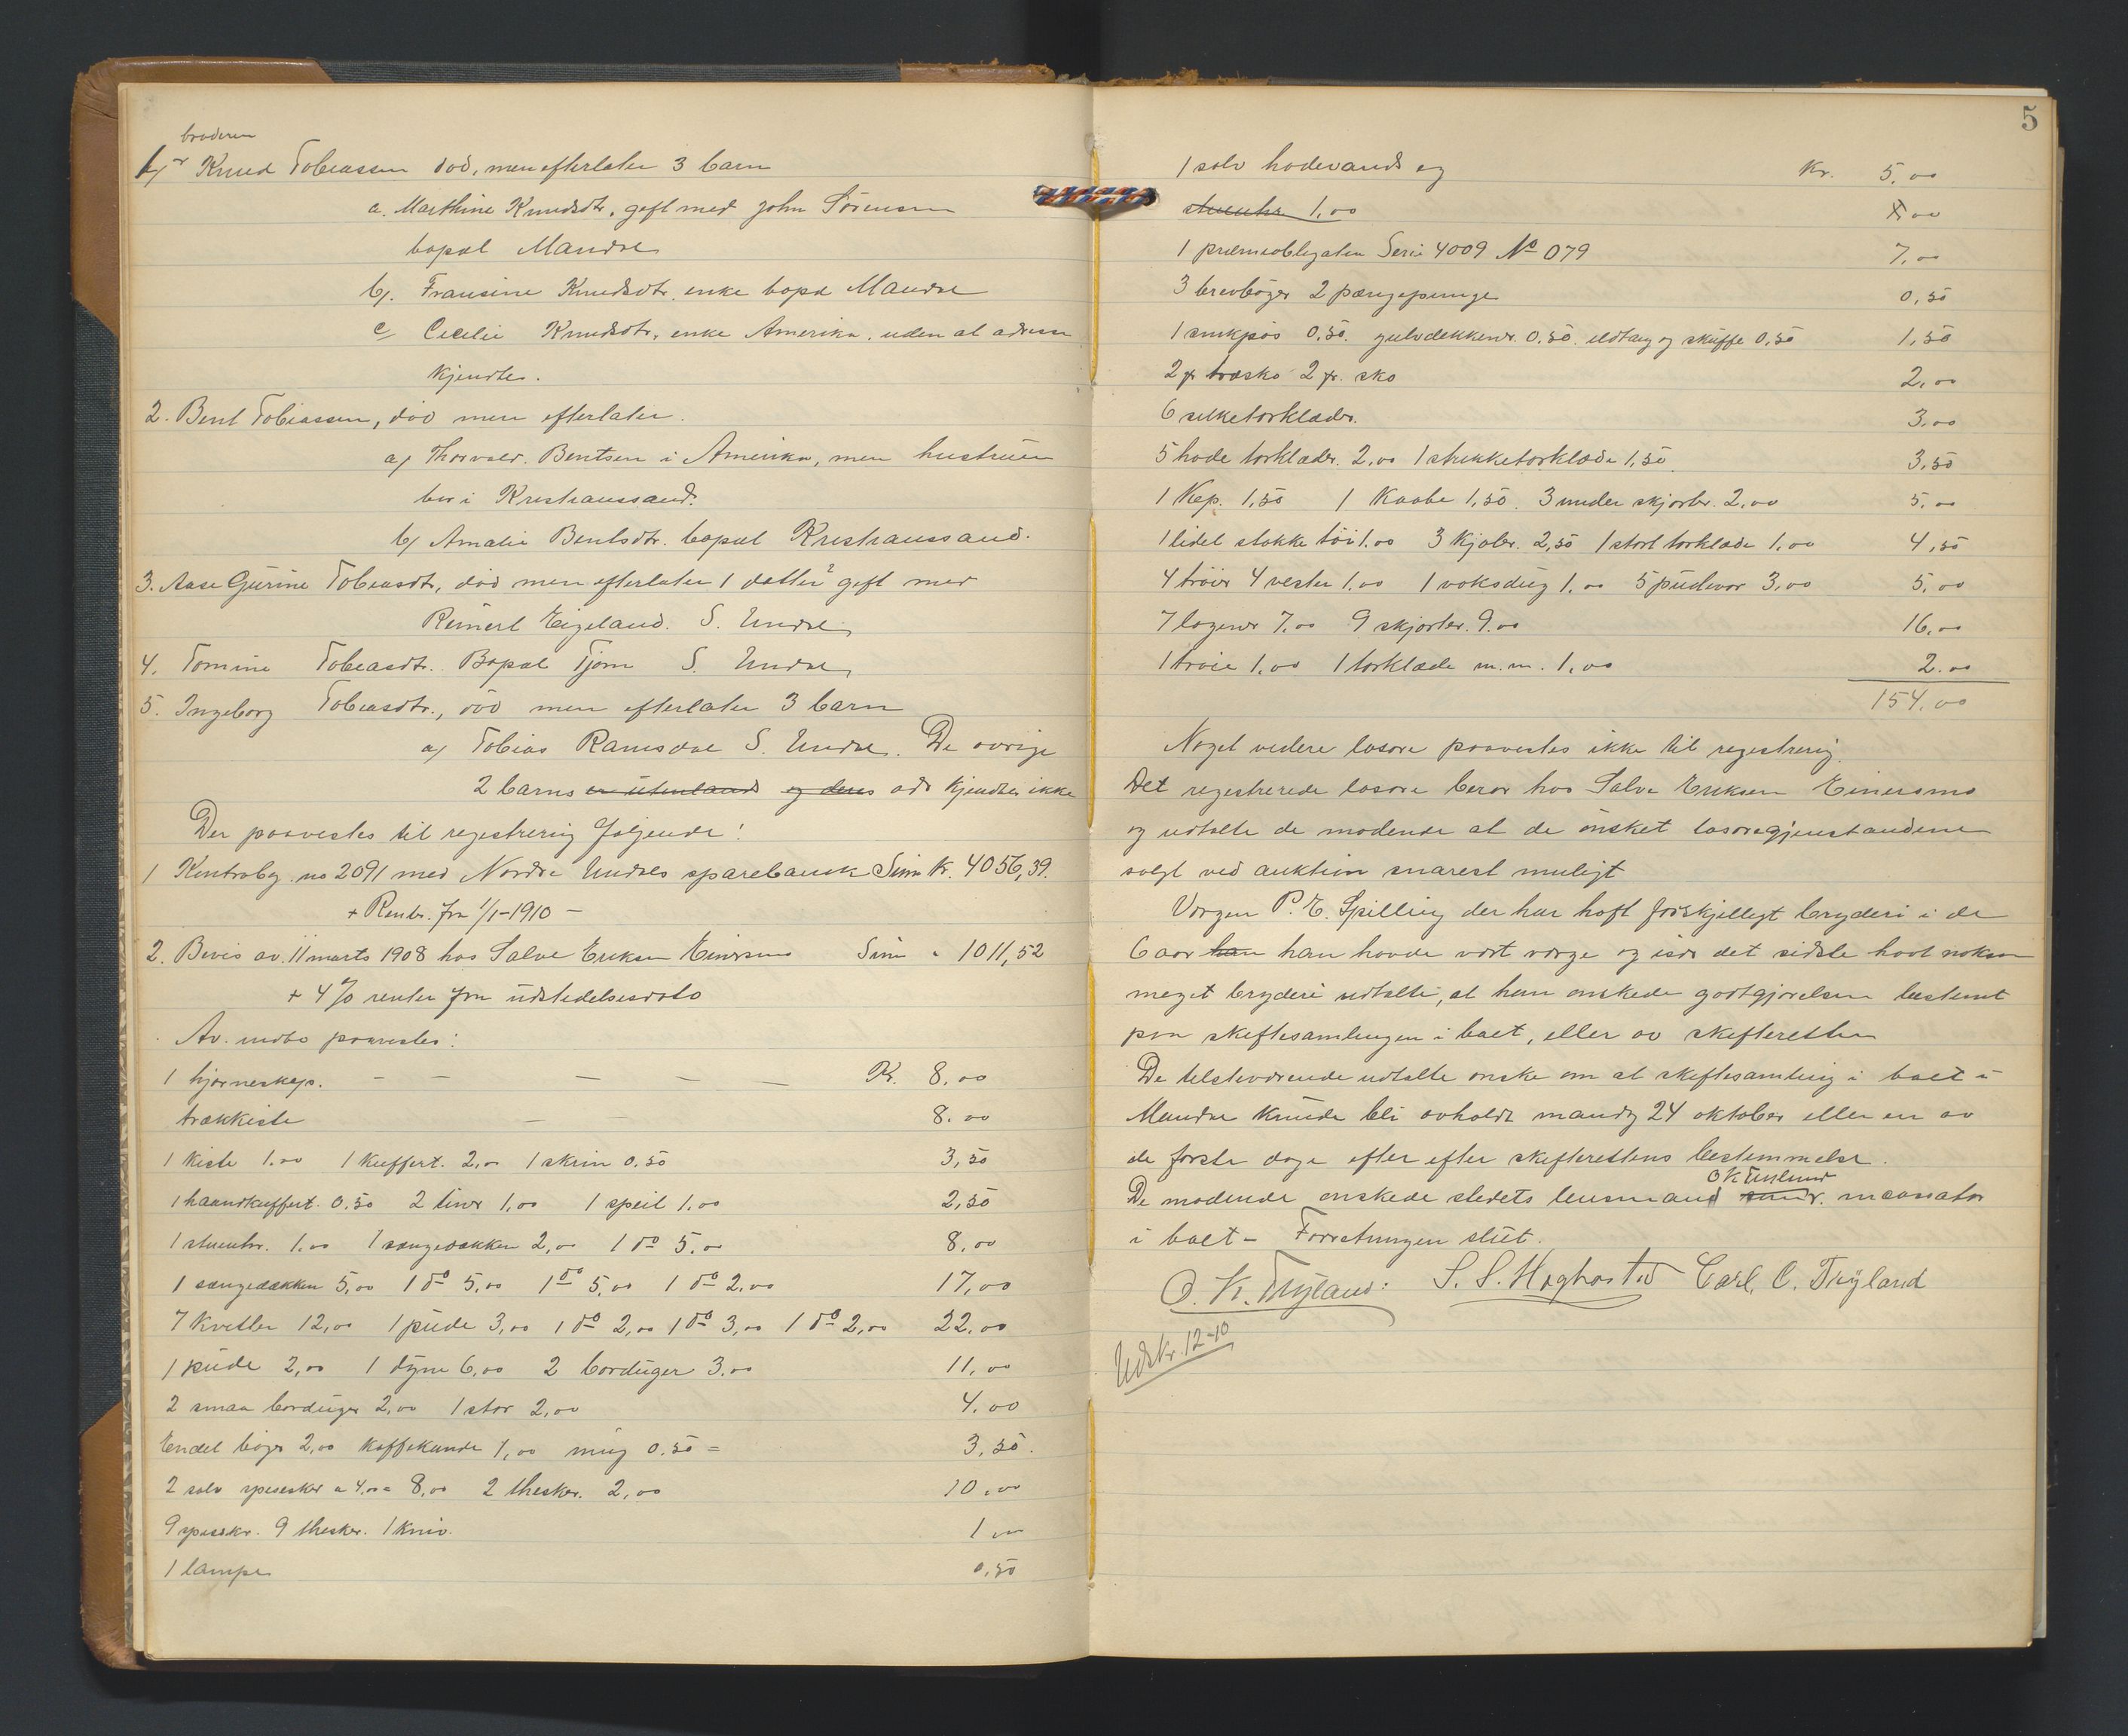 broderen
1, Knud Tobiassen død, men efterlater 3 barn
a. Marthine Knudsdtr. gift med John Sørensen
bopæl Mandal
b, Fransine Knudsdtr. enke bopæl Mandal
c, Cecilie Knudsdtr. enke Amerika. uden at adresse
kjendtes.
2. Bent Tobiassen, død men efterlater.
a, Thorvald. Bentsen i Amerika, men hustruen
bor i Kristianssand.
b, Amalie Bentsdtr. bopæl Kristianssand.
3. Aase Gurine Tobiasdtr, død men efterlater 1 datter gift med
Reinert Eigeland. S. Undal
4. Tomine Tobiasdtr. Bopæl Tjom S. Undal
5. Ingeborg Tobiasdtr., død men efterlater 3 barn
a, Tobias Ramsdal S. Undal. De øvrige
2 barns er utenlands og deres adr kjendtes ikke
Der paavistes til registrering følgende:
1 Kontrabog no 2091 med Nordre Undals sparebank Sum Kr. 4056,39.
+ Renter. fra 1/1-1910 -
2. Bevis av. 11 marts 1908 hos Salve Eriksen Einersmo Sum " 1011,52
+ 4 % renter fra udstedelsesdato
Av. indbo paavistes:
1 hjørneskap. - - - - - Kr. 8,00
trækkiste - - 8.00
1 kiste 1.00 1 kuffert. 2,00 1 skrin 0.50 3,50
1 haandkuffert. 0.50 2 tiner 1,00 1 speil 1.00 2,50
1 stueuhr. 1.00 1 sengedækken 2,00 1 do 5.00 8,00
1 sengedækken 5,00 1 do 5,00 1 do 5,00 1 do 2,00 17,00
7 kvitler 12,00 1 pude 3,00 1 do 2,00 1 do 3,00 1 do 2,00 22.00
1 pude 2,00 1 dyne 6,00 2 borduger 3.00 11,00
2 smaa borduger 2,00 1 stor 2,00 4.00
Endel bøger 2,00 kaffekande 1,00 mug 0.50 = 3,50.
2 sølv spiseskeer a 4.00 = 8,00 2 theskeer. 2,00 10,00
9 spiseskr. 9 theskeer. 1 kniv. 1,00
1 lampe 0,50
5
1 sølv hodevands eg Kr. 5,00
stueuhr 1,00 1,00
1 præmieobligation Serie 4009 No 079 7,00
3 brevbøger 2 pængepunge 0,50
1 0,50. gulvdækkener. 0.50. ildtang og skuffe 0,50 1,50
2 pr træsko 2 pr. sko 2,00
6 silketørklæder. 3.00
5 hode tørklæder. 2,00 1 strikketørklæde 1,50. 3,50
1 Kap. 1,50 1 Kaabe 1,50. 3 under skjorter. 2,00 5,00
1 lidet stokke tøi 1.00 3 kjoler. 2,50 1 stort tørklæde 1,00 4,50
4 trøier 4 vester 1,00 1 voksdug 1,00 5 pudevar 3,00 5,00
7 lagener 7,00 9 skjorter. 9.00 16,00
1 trøie 1,00 1 tørklæde m.m. 1,00 2.00
154,00
Noget videre løsøre paavistes ikke til registrering.
Det registrerede løsøre beror hos Salve Eriksen Einersmo
og udtalte de mødende at de ønsket løsøregjenstandene
solgt ved auktion snarest muligt
Værgen P. E. Spilling der har haft forskjelligt bryderi i de
6 aar han han havde vært værge og især det sidste havt noksaa
meget bryderi udtalte, at han ønskede godtgjørelsen bestemt
paa skiftesamlingen i boet, eller av skifteretten
De tilstedværende udtalte ønske om at skiftesamling i boet i
Mandal kunde bli avholdt mandag 24 oktober eller en av
de første dage efter efter skifterettens bestemmelse.
O K Trylund
De mødende ønskede stedets lensmand som incassator
i boet - Forretningen slut.
O. K. Tryland: S. S. Høghosted Carl. C. Tryland
Udskr. 12-10